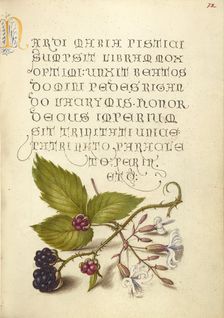 72
NARDI MARIA PISTICI
SUMPSIT LIBRAM MOX
OPTIMI: UNXIT BEATOS
DOMINI PEDES RIGAN
DO LACRYMIS. HONOR
DECUS IMPERIUM
SIT TRINITATI UNICE
PATRI NATO PARACLE
TO PERIN
ETC.